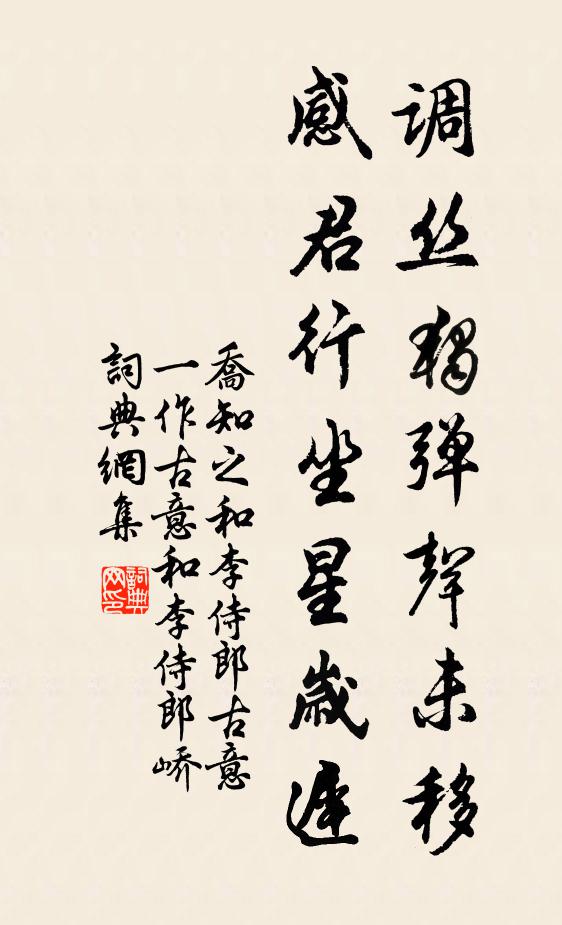 调丝独弹声未移
感君行坐星岁遲
喬知之和李侍郎古意
一作古意和李侍郎峤
詞典網集
詞典网印